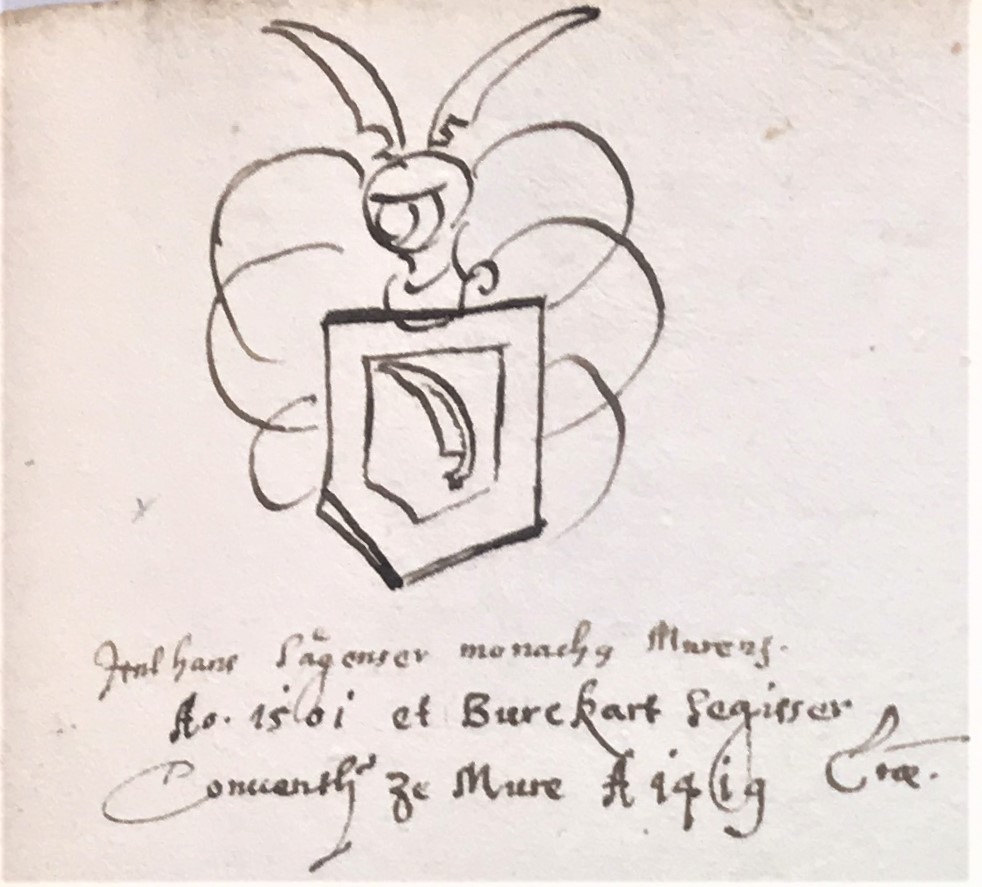 Jtel hans Sägenser monachꝯ Murens.
Ao. 1501 et Burckart Segisser
Conuenthr ze Mure A 1419